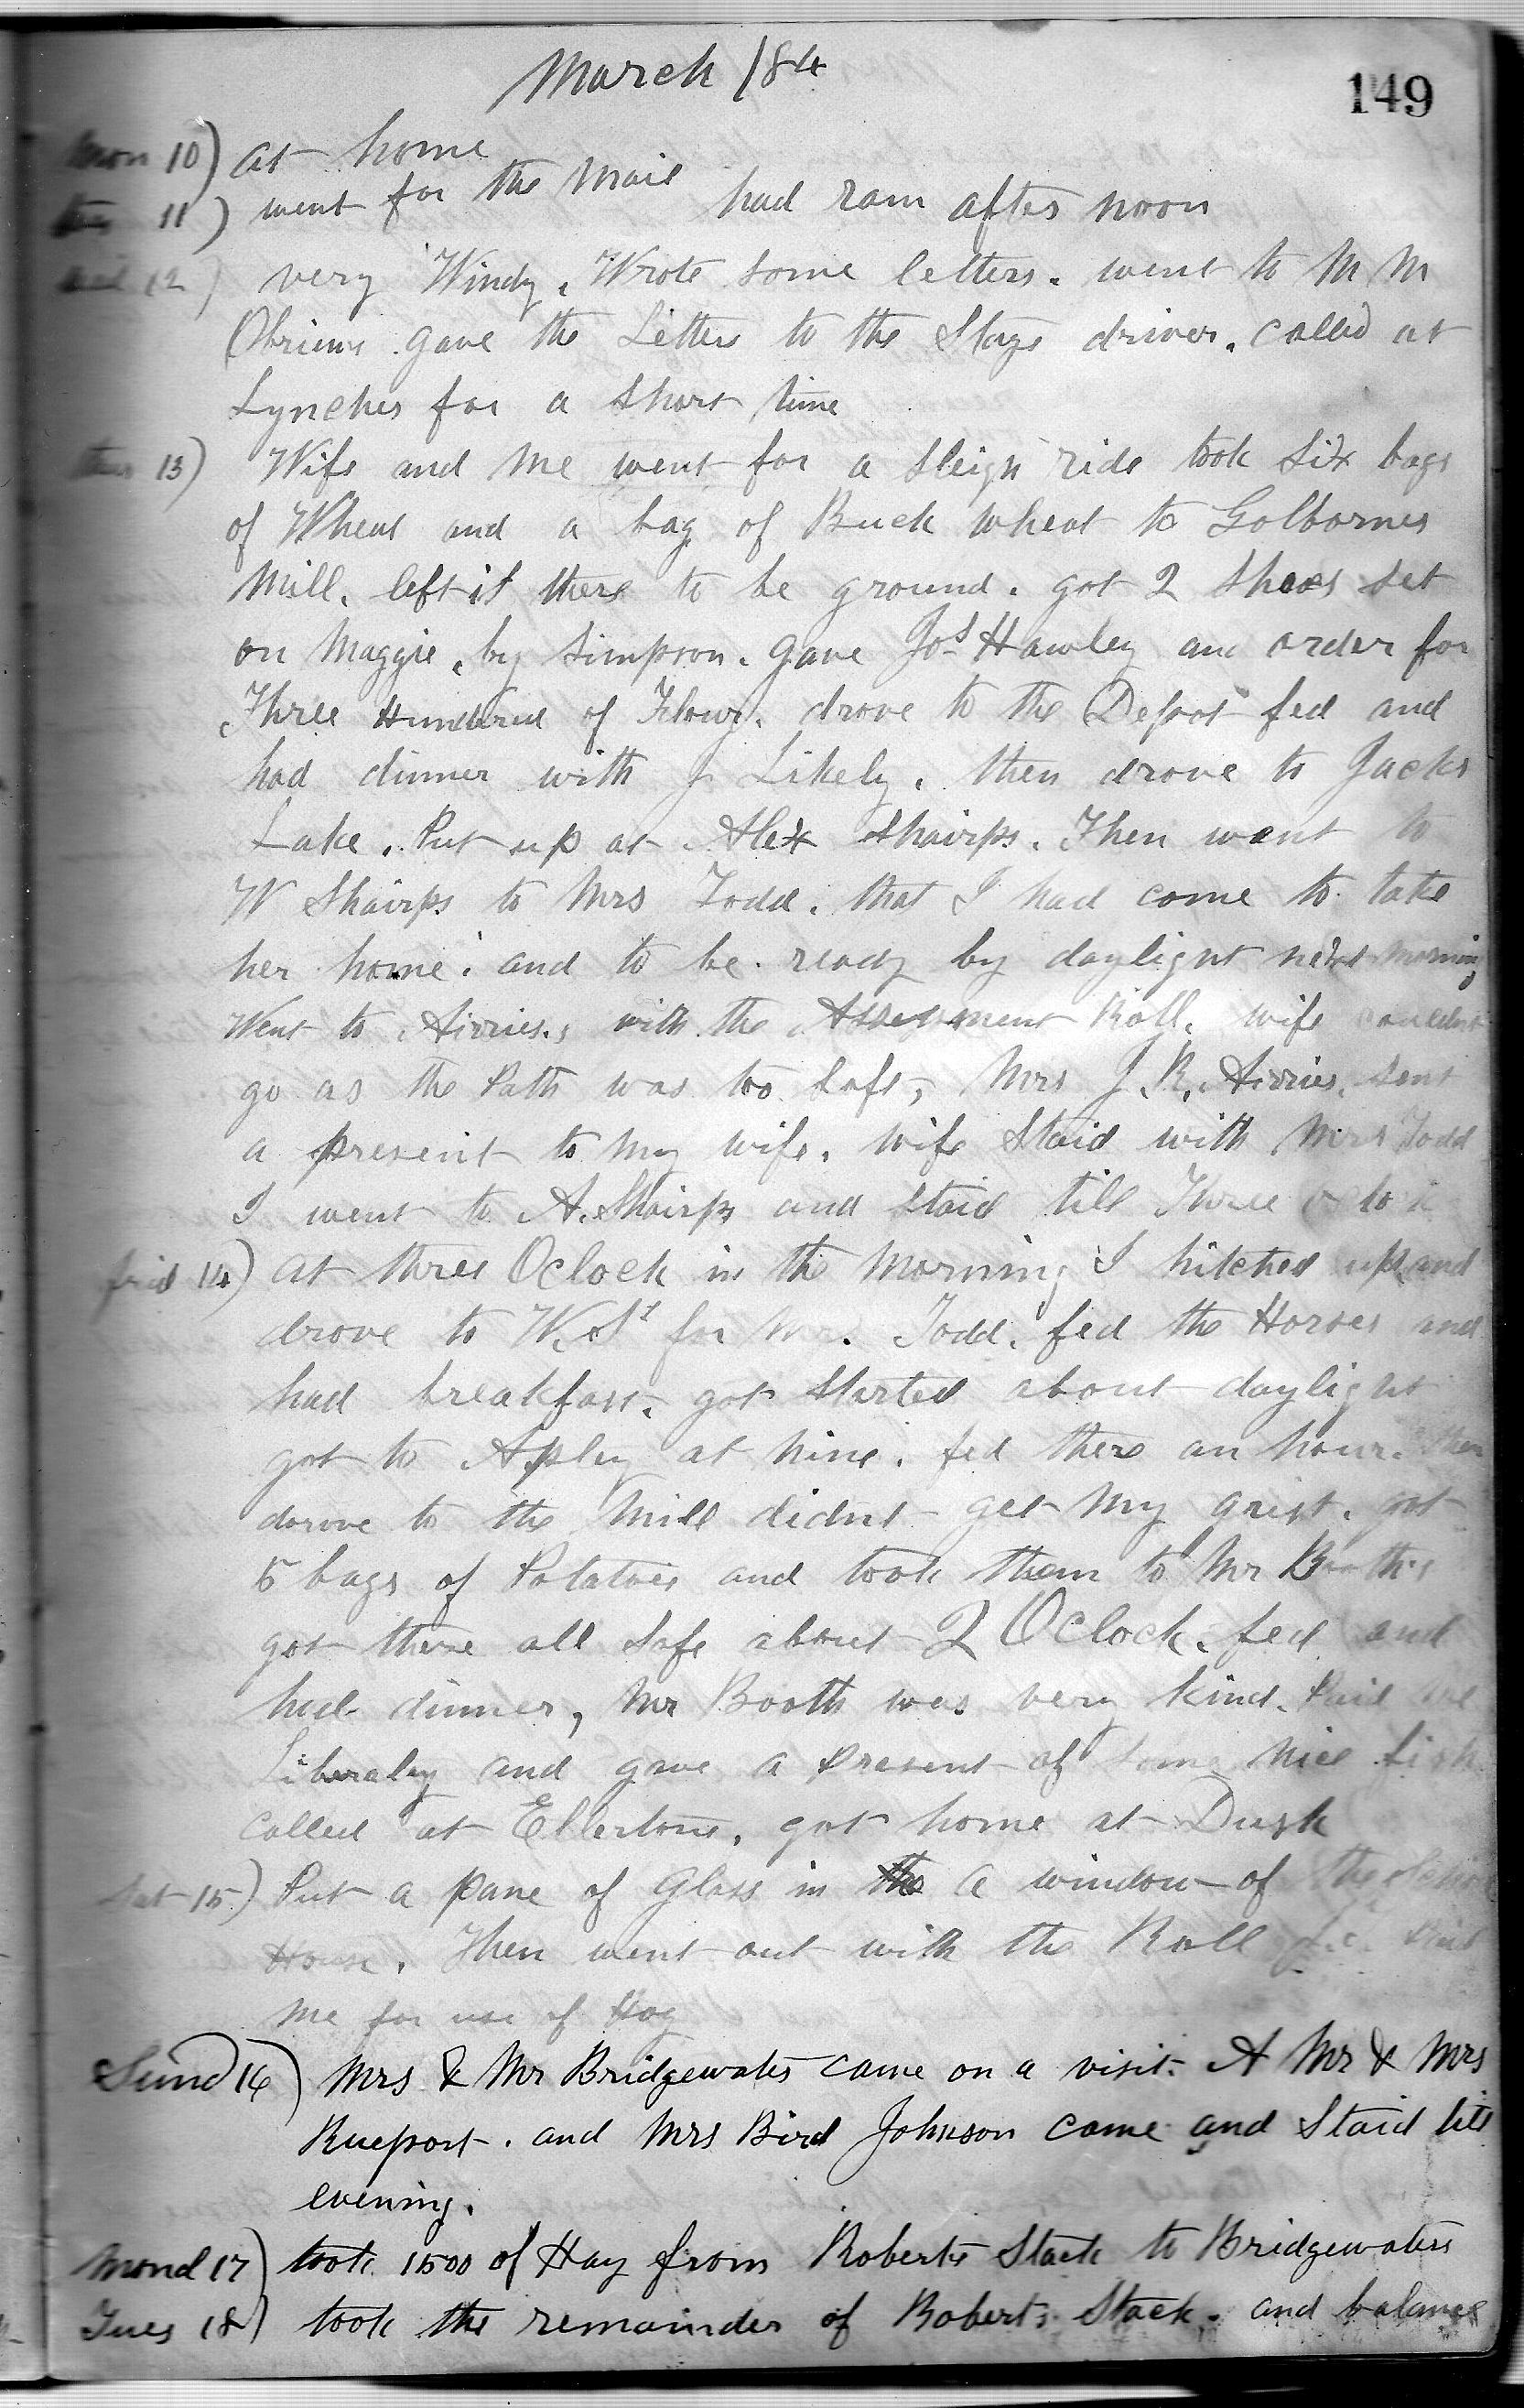 March /84
149
Mon 10) at home
11) went for the Mail had rain after noon
12) very Windy. Wrote some letters. went to M M
Obriens gave the Letters to the Stage driver. called at
Lynches for a short time
thur 13) Wife and me went for a sleigh ride took six bags
of Wheat and a bag of Buck wheat to Golbornes
Mill. left it there to be ground. got 2 shoes set
on Maggie, by Simpson. gave Jos Hawley an order for
Three Hundred of Flour. drove to the Depot fed and
had dinner with J Likely. then drove to Jacks
Lake. Put up at Alex Shairps. Then went to
W Shairps to Mrs Todd. that I had come to take
her home. and to be ready by daylight next morning
Went to Airries, with the Assessment Roll. wife couldnt
go as the Path was too soft, Mrs J. R. Airries, sent
a present to my wife. wife Staid with Mrs Todd
I went to A. Shairps and staid till Three oclock
frid 14) at three Oclock in the Morning I hitched up and
drove to W. Ss for Mrs. Todd. fed the Horses and
had breakfast. got started about daylight
got to Apley at Nine. fed there an hour. then
dorove to the Mill didnt get My grist. got
5 bags of Potatoes and took them to Mr Booths
got there all safe about 2 OClock. fed and
had dinner, Mr Booth was very kind. Paid me
Liberaley and gave a Present of some nice fish
Called at Ellertons. got home at Dusk
Sat 15) Put a pane of Glass in the a window of the School
House. Then went out with the Roll Paid
Me for use of Hog
Sund 16) Mrs & Mr Bridgewater came on a visit. A Mr & Mrs
Rueport. and Mrs Bird Johnson came and Staid till
evening.
Mond 17) took 1500 of Hay from Roberts Stack to Bridgewaters
Tues 18) took the remainder of Roberts Stack. and balance